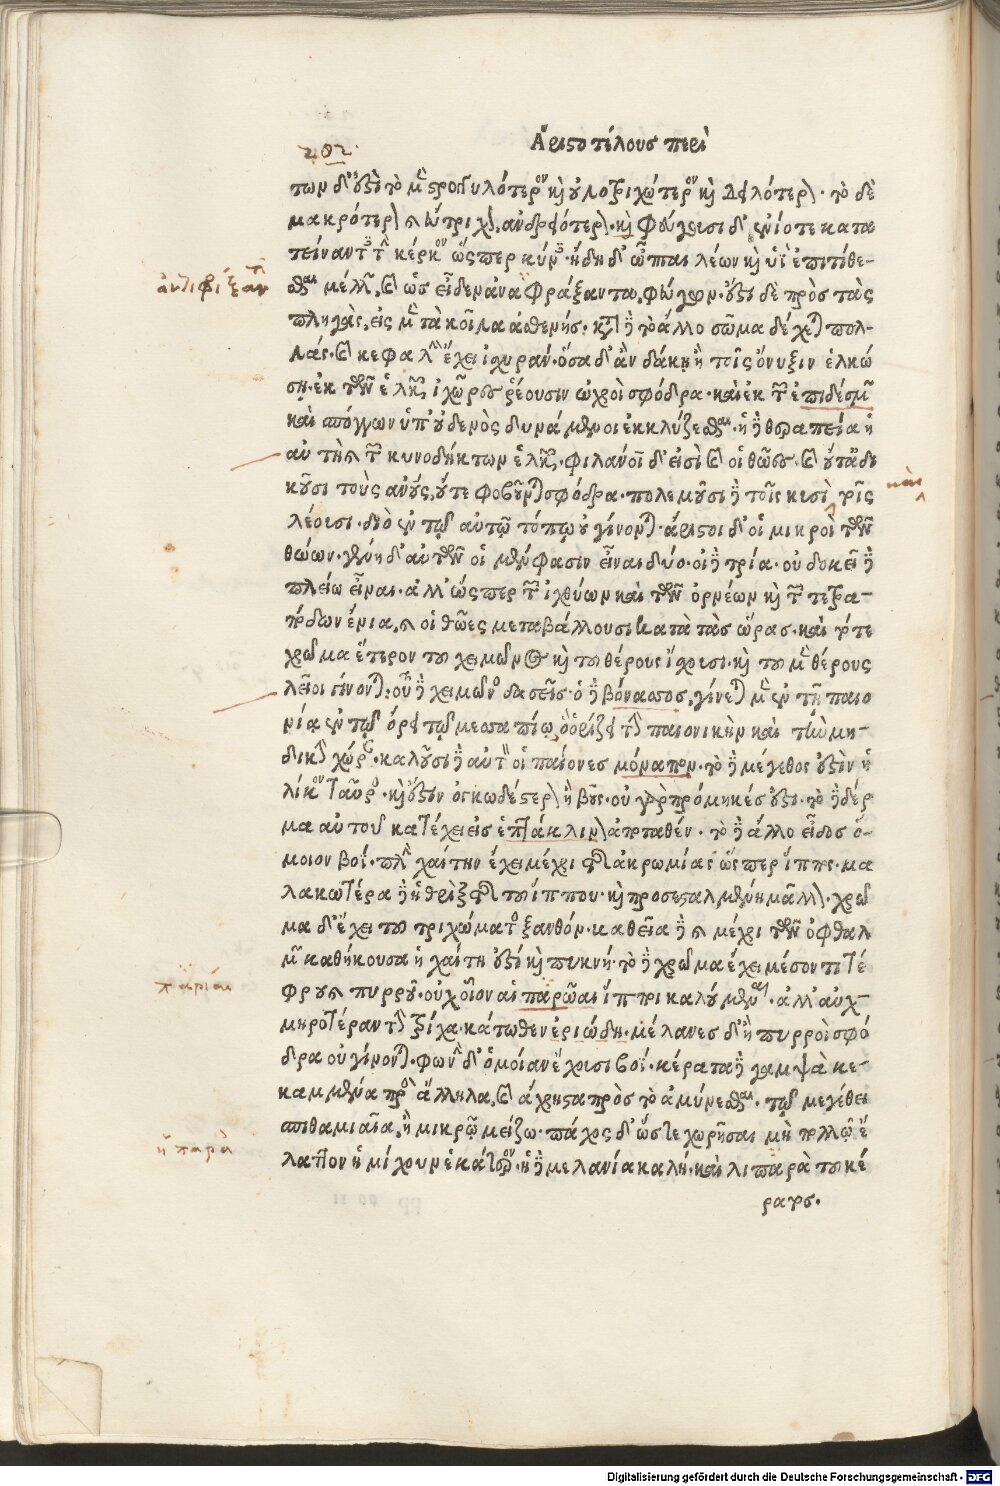 202
Ἀριστοτέλους περὶ
των δ' ἐστὶ τὸ μὲν στρογγυλότερον καὶ οὐλοτριχώτερον καὶ δειλότερον. τὸ δὲ
μακρότερον καὶ εὔτριχον, ἀνδρειότερον. καὶ φεύγουσι δ' ἐνίοτε κατα
τείναντες τὴν κέρκον ὥσπερ κύνες. ἤδη δ' ὦπται λέων καὶ ὑῒ ἐπιτίθε-
σθαι μέλλων, καὶ ὡς εἶδεν ἀναφράξαντα, φεύγων. ἔστι δὲ πρὸς τὰς
πληγὰς, εἰς μὲν τὰ κοῖλα ἀσθενής. κατὰ δὲ τὸ ἄλλο σῶμα δέχεται πολ-
λάς. καὶ κεφαλὴν ἔχει ἰσχυράν. ὅσα δ' ἂν δάκῃ ἢ τοῖς ὄνυξιν ἑλκώ
σῃ. ἐκ τῶν ἑλκῶν ἰχῶρες ῥέουσιν ὠχροὶ σφόδρα. καὶ ἐκ τῶν ἐπιδέσμων
καὶ σπόγγων ὑπ' οὐδενὸς δυνάμενοι ἐκκλύζεσθαι. ἡ δὲ θεραπεία ἡ
αὐτὴ καὶ τῶν κυνοδήκτων ἑλκῶν. φιλάνοι δ' εἰσὶ καὶ οἱ θῶες. καὶ οὔτ' ἀδι
κοῦσι τοὺς ἀνους, οὔτε φοβοῦνται σφόδρα. πολεμοῦσι δὲ τοῖς κυσὶ τοῖς
λέουσι. διὸ ἐν τῷ αὐτῷ τόπῳ οὐ γίνονται. ἄριστοι δ' οἱ μικροὶ τῶν
θώων. γένη δ' αὐτῶν οἱ μέν φασιν εἶναι δύο. οἱ δὲ τρία. οὐ δοκεῖ δὲ
πλείω εἶναι. ἀλλ' ὥσπερ τῶν ἰχθύων καὶ τῶν ὀρνέων καὶ τῶν τετρα-
πόδων ἔνια, καὶ οἱ θῶες μεταβάλλουσι κατὰ τὰς ὥρας. καὶ τότε
χρῶμα ἕτερον τοῦ χειμῶνος καὶ τοῦ θέρους ἴσχουσι. καὶ τοῦ μὲν θέρους
λεῖοι γίνονται. τοῦ δὲ χειμῶνος δασεῖς. ὁ δὲ βόνασσος, γίνεται μὲν ἐν τῇ παιο
νίᾳ ἐν τῷ ὄρει τῷ μεσσαπίῳ, ὃ ὁρίζει τὴν παιονικὴν καὶ τὴν μη-
δικὴν χώραν. καλοῦσι δὲ αὐτὸν οἱ παίονες μόναπον. τὸ δὲ μέγεθος ἐστὶν ἡ
λίκον ταῦρος. καὶ ἔστιν ὀγκωδέστερον ἢ βοῦς. οὐ γὰρ πρόμηκές ἐστι. τὸ δὲ δέρ
μα αὐτοῦ κατέχει εἰς ἑπτάκλινον ἀποταθέν. τὸ δὲ ἄλλο εἶδος ὅ-
μοιον βοΐ. πλὴν χαίτην ἔχει μέχρι τῆς ἀκρωμίας ὥσπερ ἵππος. μα
λακωτέρα δὲ ἡ θρὶξ τῆς τοῦ ἵππου. καὶ προσεσταλμένη μᾶλλον. χρῶ
μα δ' ἔχει τοῦ τριχώματος ξανθόν. καθεῖα δὲ καὶ μέχρι τῶν ὀφθαλ
μῶν καθήκουσα ἡ χαίτη ἐστὶ καὶ πυκνή. τὸ δὲ χρῶμα ἔχει μέσον τι τέ
φρου καὶ πυρροῦ. οὐχ οἷον αἱ παρῶαι ἵπποι καλούμεναι. ἀλλ' αὐχ-
μηροτέραν τὴν τρίχα. κάτωθεν ἐριώδη. μέλανες δ' ἢ πυρροὶ σφό
δρα οὐ γίνονται. φωνὴν δ' ὁμοίαν ἔχουσι βοΐ. κέρατα δὲ γαμψὰ κε-
καμμένα πρὸς ἄλληλα, καὶ ἄχρηστα πρὸς τὸ ἀμύνεσθαι. τῷ μεγέθει
σπιθαμιαῖα, ἢ μικρῷ μείζω. πάχος δ' ὥστε χωρῆσαι μὴ πολλῷ ἔ
λαττον ἡμίχουν ἑκάτερον. ἡ δὲ μελανία καλή. καὶ λιπαρὰ τοῦ κέ
ρατος.
παρίαι
ἢ παρὰ
Digitalisierung gefördert durch die Deutsche Forschungsgemeinschaft - DFG